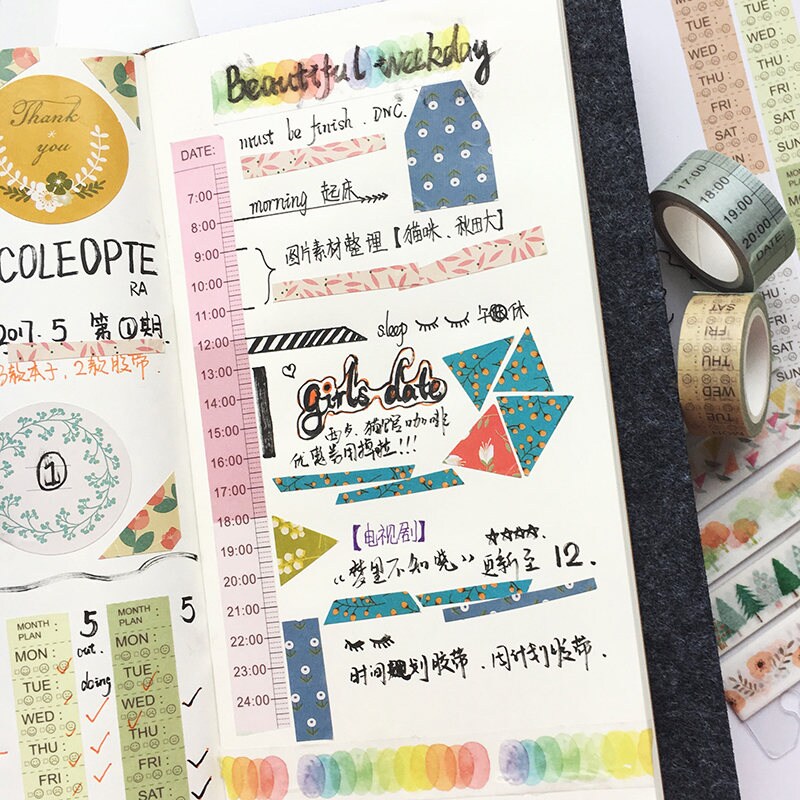 Thank
you
COLEOPTE
RA
2017.5 第①期
2款胶带.
1
MONTH
PLAN
5
MON :
out.
TUE :
doing
WED :
THU :
FRI :
MONTH
PLAN
5
MON :
TUE :
WED :
THU :
FRI :
SAT :
Beautiful weekday
must be finish. DNC.
DATE:
7:00
8:00
9:00
10:00
11:00
12:00
13:00
14:00
15:00
16:00
17:00
18:00
19:00
20:00
21:00
22:00
23:00
24:00
morning 起床
图片素材整理【猫咪、秋田犬】
sleep 午休
girl's date
西点.猫馆咖啡
优惠券用掉啦!!!
【电视剧】
《梦里不知晓》更新至 12.
时间规划胶带、周计划胶带.
TUE :
WED :
THU :
FRI :
SAT :
SUN :
MONTH
TUE :
WED :
THU :
FRI :
SAT :
SUN :
17:00
18:00
19:00
20:00
DATE:
SAT
FRI
THU
WED